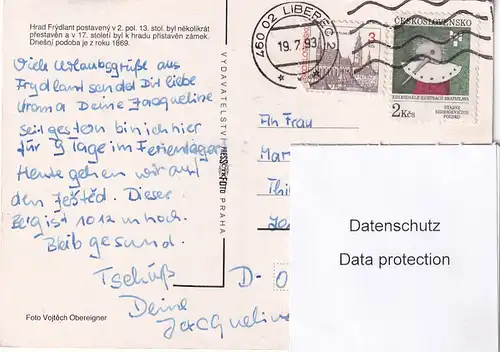 Hrad Frýdlant postavený v 2. pol. 13. stol. byl několikrát
přestavěn a v 17. století byl k hradu přistavěn zámek.
Dnešní podoba je z roku 1869.
Viele Urlaubsgrüße aus
Frydland sendet Dir liebe
Uroma Deine Jacqueline
seit gestern bin ich hier
für 9 Tage im Ferienlager
Heute gehen wir auf
den Ještěd. Dieser
Berg ist 1012 m hoch.
Bleib gesund.
Tschüß
Deine
Jacqueline
Foto Vojtěch Obereigner
VYDAVATELSTVÍ PRESSFOTO PRAHA
460 02 LIBEREC 2
19. 7. 93
3
ČESKOSLOVENSKO
2 Kčs
An Frau
D-O
Datenschutz
Data protection